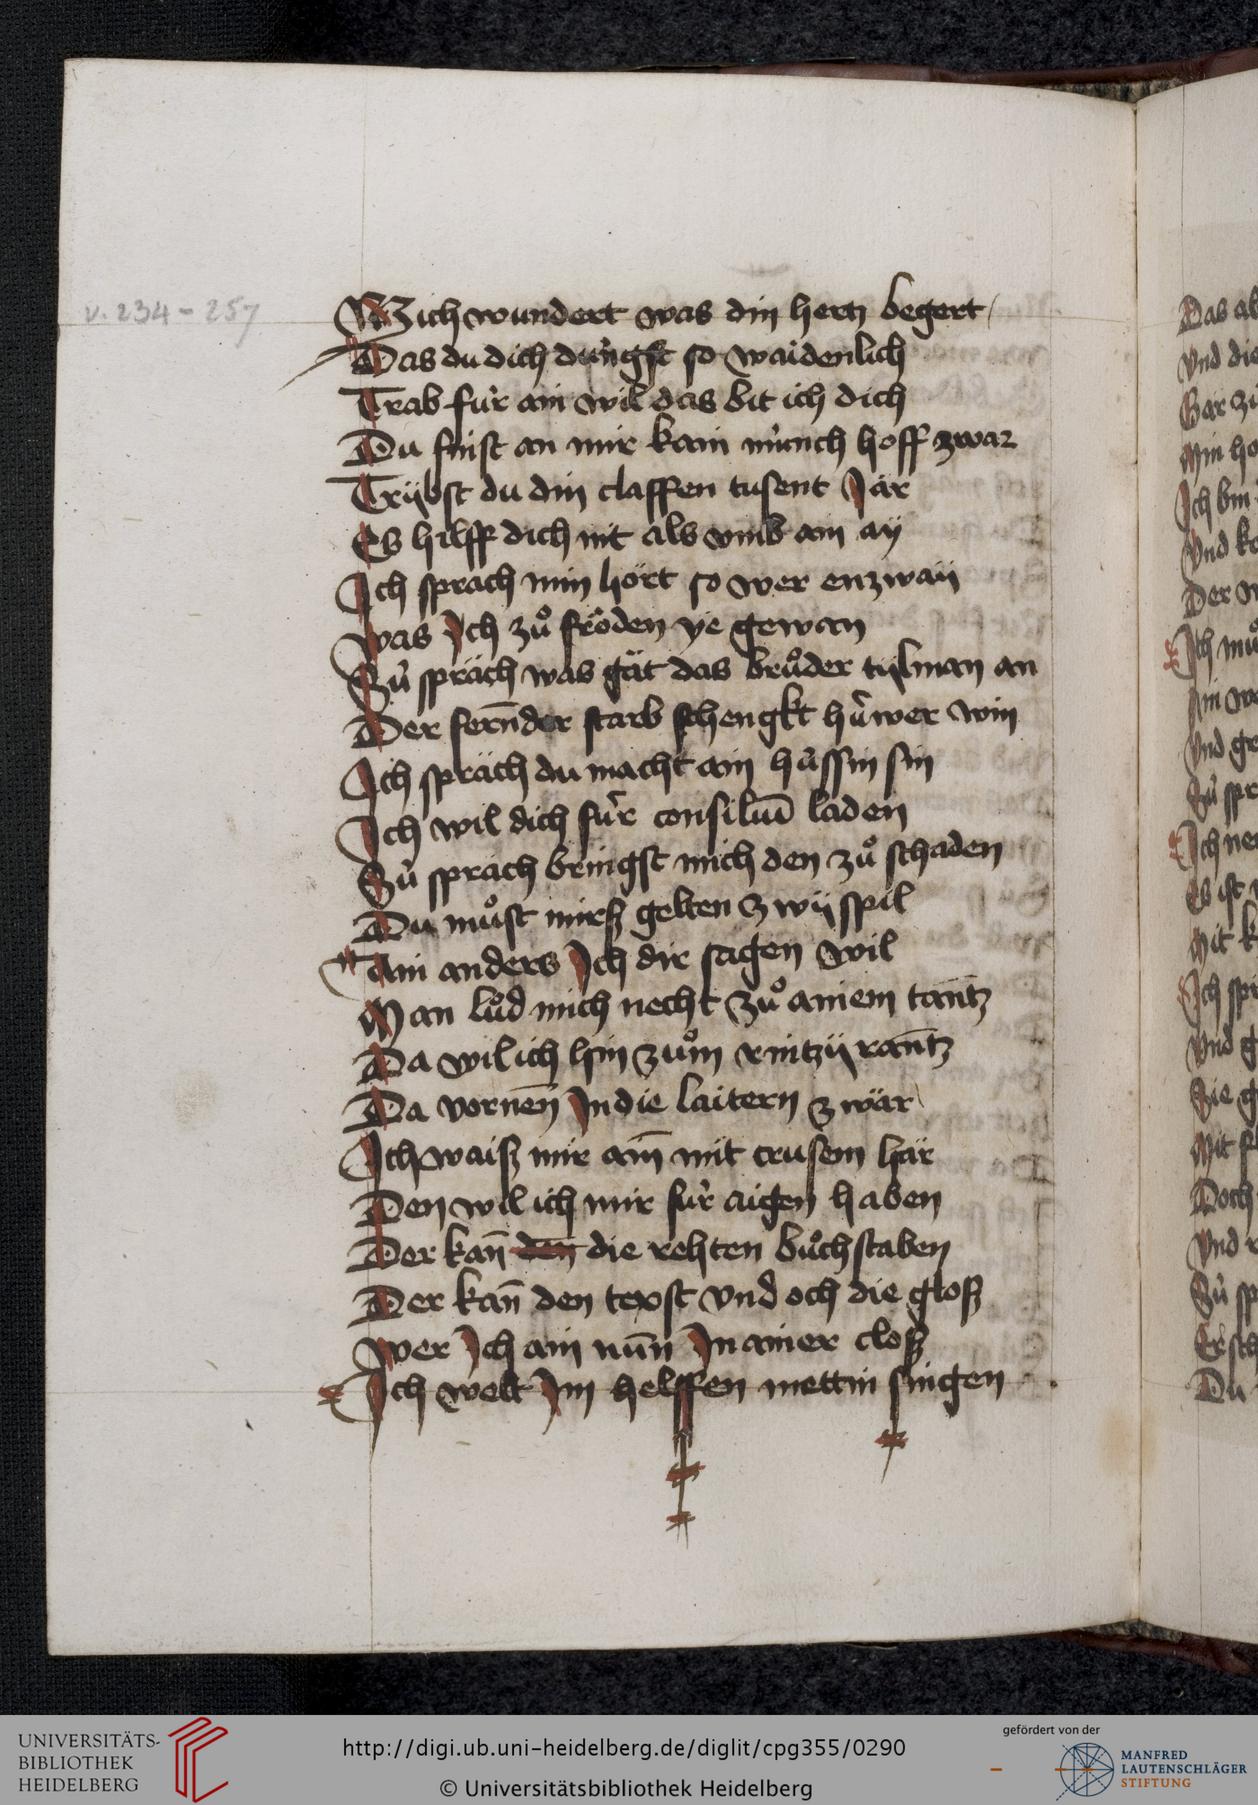 v. 234 - 257
Mich wundert was din hertz begert
Das du dich so waidenlich
Trab für ain wil das bit ich dich
Du finst an mir kain münch hoff zwar
Trÿbst du din claffen tusent Jär
Es hilff dich nit als vmb ain aÿ
Ich sprach min hort so wer enzwaÿ
was Ich zů fröden ye gewan
Sü spräch was gät das brůder tÿlman an
Der fern̄der starb schengkt hüwer win
Ich spräch du macht ain hüssin sin
Ich wil dich für consiluī laden
Sü sprach bringst mich den zů schaden
Du můst mirß gelten zwÿ spil
Ain anders Ich dir sagen wil
Man lůd mich necht zů ainem tantz
Da wil ich hin zům
Da vornen̄ In die laitern zwär
Ich waisz mir ain̄ mit crusem här
Den wil ich mir für aigen haben
Der kan̄ die rehten bůchstaben
Der kan̄ den texst vnd och die glosz
wer Ich ain nūn In ainer closz
Ich welt Im helffen mettin singen
Das
Vnd
Gar zü
Min
Ich bin
Vnd
Der
Ich
Ain
Vnd
Sü
Ich
Es ist
Mit
Ich
Vnd
Sie
Mit
Doch
Vnd
Sü
Er
Du
UNIVERSITÄTS-
BIBLIOTHEK
HEIDELBERG
http://digi.ub.uni-heidelberg.de/diglit/cpg355/0290
© Universitätsbibliothek Heidelberg
gefördert von der
MANFRED
LAUTENSCHLÄGER
STIFTUNG